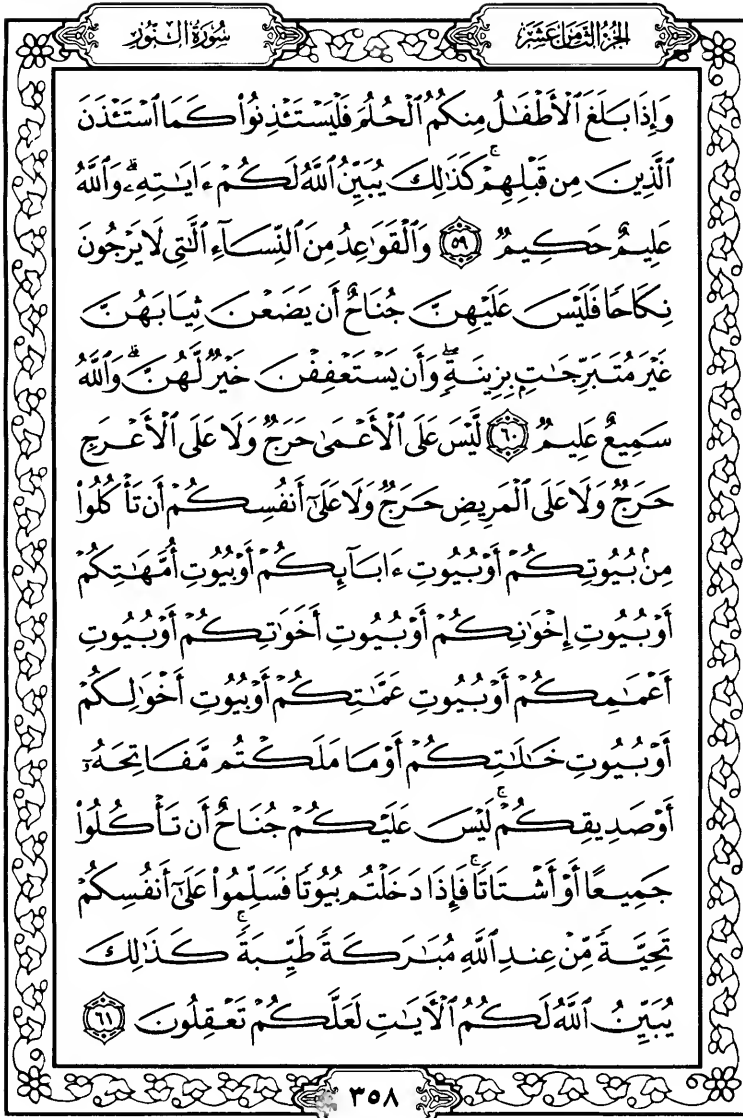 الجزء الثامن عشر
سورة النور
وَإِذَا بَلَغَ ٱلْأَطْفَٰلُ مِنكُمُ ٱلْحُلُمَ فَلْيَسْتَـْٔذِنُوا۟ كَمَا ٱسْتَـْٔذَنَ
ٱلَّذِينَ مِن قَبْلِهِمْ ۚ كَذَٰلِكَ يُبَيِّنُ ٱللَّهُ لَكُمْ ءَايَٰتِهِۦ ۗ وَٱللَّهُ
عَلِيمٌ حَكِيمٌ ٥٩ وَٱلْقَوَٰعِدُ مِنَ ٱلنِّسَآءِ ٱلَّٰتِى لَا يَرْجُونَ
نِكَاحًا فَلَيْسَ عَلَيْهِنَّ جُنَاحٌ أَن يَضَعْنَ ثِيَابَهُنَّ
غَيْرَ مُتَبَرِّجَٰتٍۭ بِزِينَةٍ ۖ وَأَن يَسْتَعْفِفْنَ خَيْرٌ لَّهُنَّ ۗ وَٱللَّهُ
سَمِيعٌ عَلِيمٌ ٦٠ لَّيْسَ عَلَى ٱلْأَعْمَىٰ حَرَجٌ وَلَا عَلَى ٱلْأَعْرَجِ
حَرَجٌ وَلَا عَلَى ٱلْمَرِيضِ حَرَجٌ وَلَا عَلَىٰٓ أَنفُسِكُمْ أَن تَأْكُلُوا۟
مِنۢ بُيُوتِكُمْ أَوْ بُيُوتِ ءَابَآئِكُمْ أَوْ بُيُوتِ أُمَّهَٰتِكُمْ
أَوْ بُيُوتِ إِخْوَٰنِكُمْ أَوْ بُيُوتِ أَخَوَٰتِكُمْ أَوْ بُيُوتِ
أَعْمَٰمِكُمْ أَوْ بُيُوتِ عَمَّٰتِكُمْ أَوْ بُيُوتِ أَخْوَٰلِكُمْ
أَوْ بُيُوتِ خَٰلَٰتِكُمْ أَوْ مَا مَلَكْتُم مَّفَاتِحَهُۥٓ
أَوْ صَدِيقِكُمْ ۚ لَيْسَ عَلَيْكُمْ جُنَاحٌ أَن تَأْكُلُوا۟
جَمِيعًا أَوْ أَشْتَاتًا ۚ فَإِذَا دَخَلْتُم بُيُوتًا فَسَلِّمُوا۟ عَلَىٰٓ أَنفُسِكُمْ
تَحِيَّةً مِّنْ عِندِ ٱللَّهِ مُبَٰرَكَةً طَيِّبَةً ۚ كَذَٰلِكَ
يُبَيِّنُ ٱللَّهُ لَكُمُ ٱلْأٓيَٰتِ لَعَلَّكُمْ تَعْقِلُونَ ٦١
٣٥٨